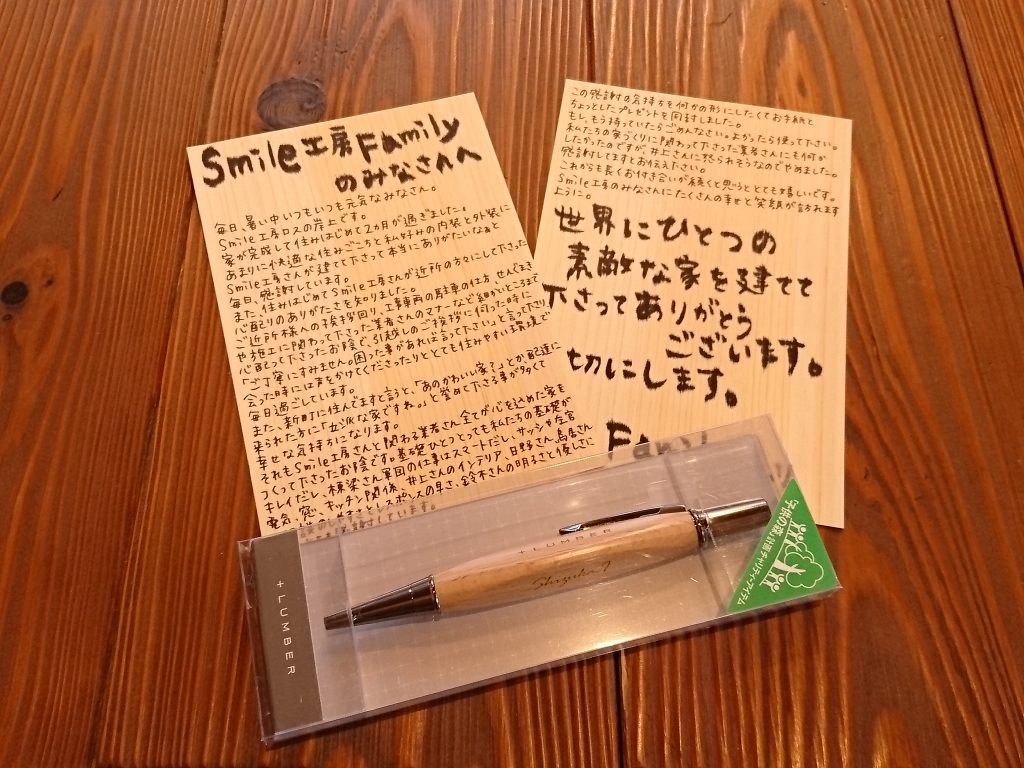 Smile工房Family
のみなさんへ
毎日、暑い中いつもいつも元気なみなさん。
Smile工房ロスの岸上です。
家が完成して住みはじめて2カ月が過ぎました。
あまりに快適な住みごこちと私好みの内装と外装に
Smile工房さんが建てて下さって本当にありがたいなぁと
毎日、感謝しています。
また、住みはじめてSmile工房さんが近所の方々にして下さった
心配りのありがたさを知りました。
ご近所様への挨拶回り、工事車両の駐車の仕方、せんぐるまで
や施工に関わって下さった業者さんのマナーなど細かいところまで
心配って下さったお陰で、引越しのご挨拶に伺った時に
「ご丁寧にすみません。困った事があれば言って下さい」と言って下さり
会った時には声をかけてくださったりととても住みやすい環境で
毎日過ごしています。
また、新町に住んでますと言うと、「あのかわいい家?」とか配達に
来られた方に「立派な家ですね。」と誉めて下さる事が多くて
幸せな気持ちになります。
それもSmile工房さんと関わる業者さん全てが心を込めた家を
つくって下さったお陰です。基礎ひとつとっても私たちの基礎が
キレイだし、棟梁さん軍団の仕事はスマートだし、サッシや左官
電気、窓、キッチン関係、井上さんのインテリア、日野さん、鳥居さん
レスポンスの早さ、鈴木さんの明るさと優しさに
しています。
この感謝の気持ちを何かの形にしたくてお手紙と
ちょっとしたプレゼントを同封しました。
もし、もう持っていたらごめんなさい。よかったら使って下さい。
私たちの家づくりに関わって下さった業者さんにも何か
したかったのですが、井上さんに怒られそうなのでやめました。
感謝してますとお伝え下さい。
これからも長くお付き合いが続くと思うととても嬉しいです。
Smile工房のみなさんにたくさんの幸せと笑顔が訪れます
ように。
世界にひとつの
素敵な家を建てて
下さってありがとう
ございます。
大切にします。
Family
+LUMBER
+LUMBER
Shizuka I
「子供の森」計画チャリティーアイテム